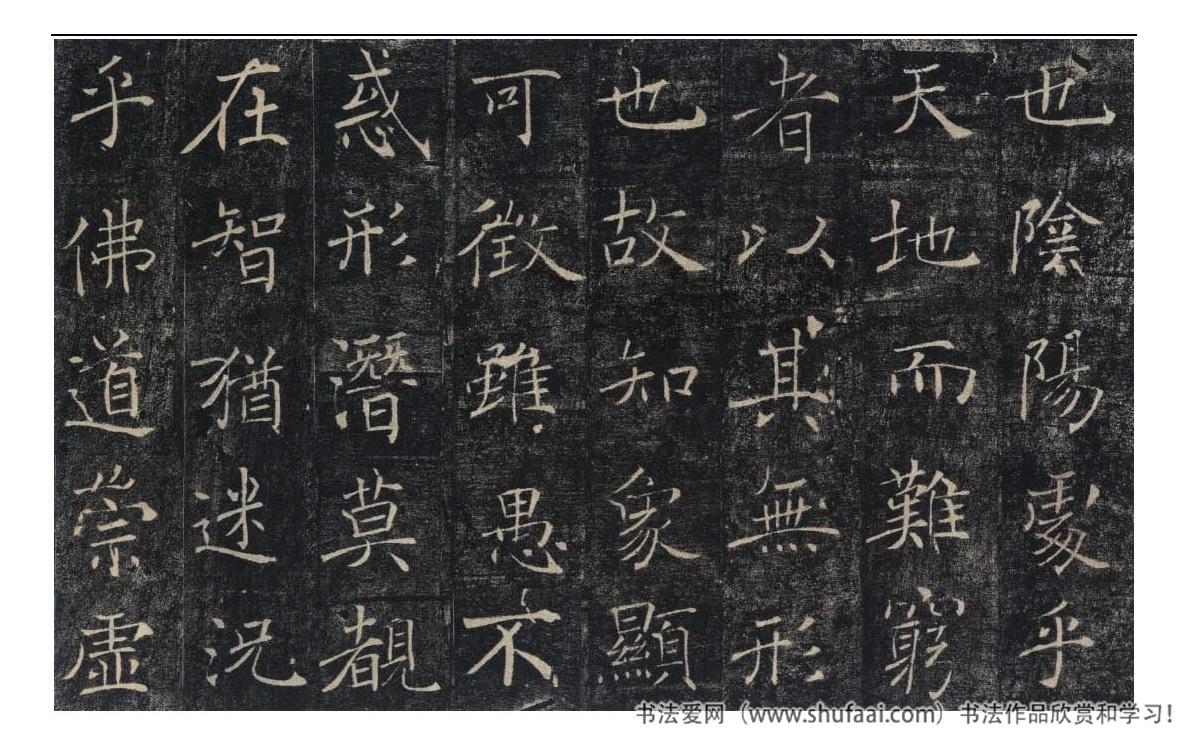 也陰陽處乎
天地而難窮
者以其無形
也故知象顯
可徵雖愚不
惑形潛莫覩
在智猶迷況
乎佛道崇虛
书法爱网（www.shufaai.com）书法作品欣赏和学习！